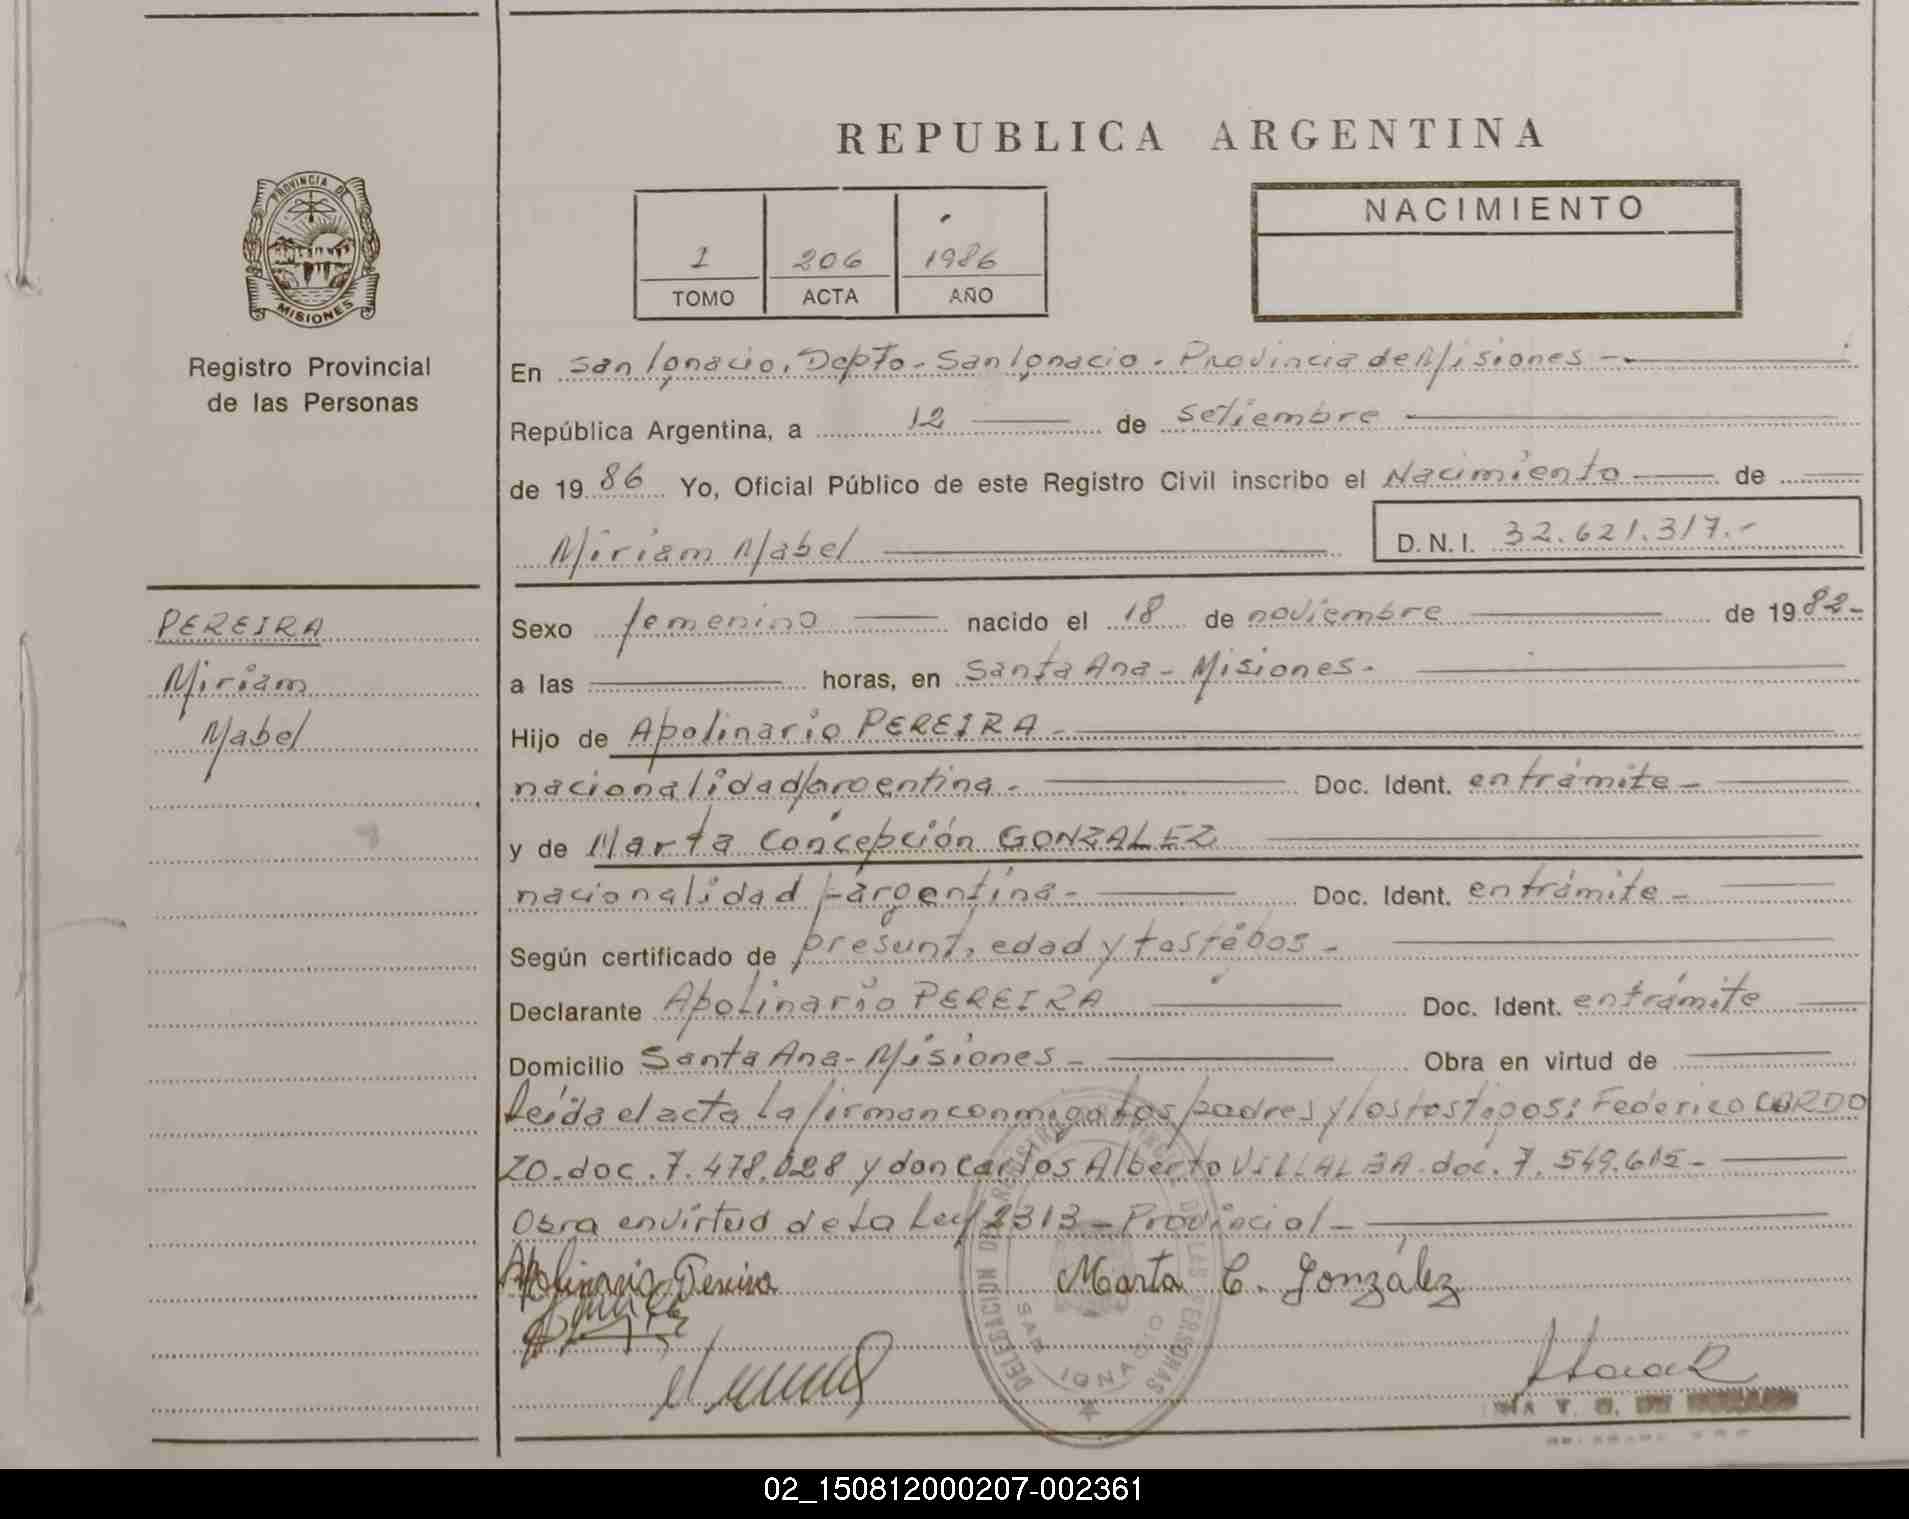 REPUBLICA ARGENTINA
PROVINCIA DE
MISIONES
Registro Provincial
de las Personas
1 206 1986
TOMO ACTA AÑO
NACIMIENTO
En San Ignacio, Depto. San Ignacio. Provincia de Misiones
República Argentina, a 12 de Setiembre
de 19 86 Yo, Oficial Público de este Registro Civil inscribo el Nacimiento de
Miriam Mabel D. N. I. 32.621.317.-
PEREIRA
Miriam
Mabel
Sexo femenino nacido el 18 de noviembre de 19 82-
a las horas, en Santa Ana - Misiones-
Hijo de Apolinario PEREIRA-
nacionalidad argentina- Doc. Ident. en trámite-
y de Marta Concepción GONZALEZ
nacionalidad argentina- Doc. Ident. en trámite-
Según certificado de presunt, edad y testigos-
Declarante Apolinario PEREIRA Doc. Ident. en trámite
Domicilio Santa Ana - Misiones- Obra en virtud de
Leída el acta la firman conmigo los padres y los testigos: Federico CARDO
ZO. doc. 7.478.028 y don Carlos Alberto VILLALBA. doc. 7.549.615-
Obra en virtud de la Ley 2313 - Provincial-
Apolinario Pereira Marta C. González
DELEGACION DEL REGISTRO PROVINCIAL DE LAS PERSONAS
SAN IGNACIO
02_150812000207-002361